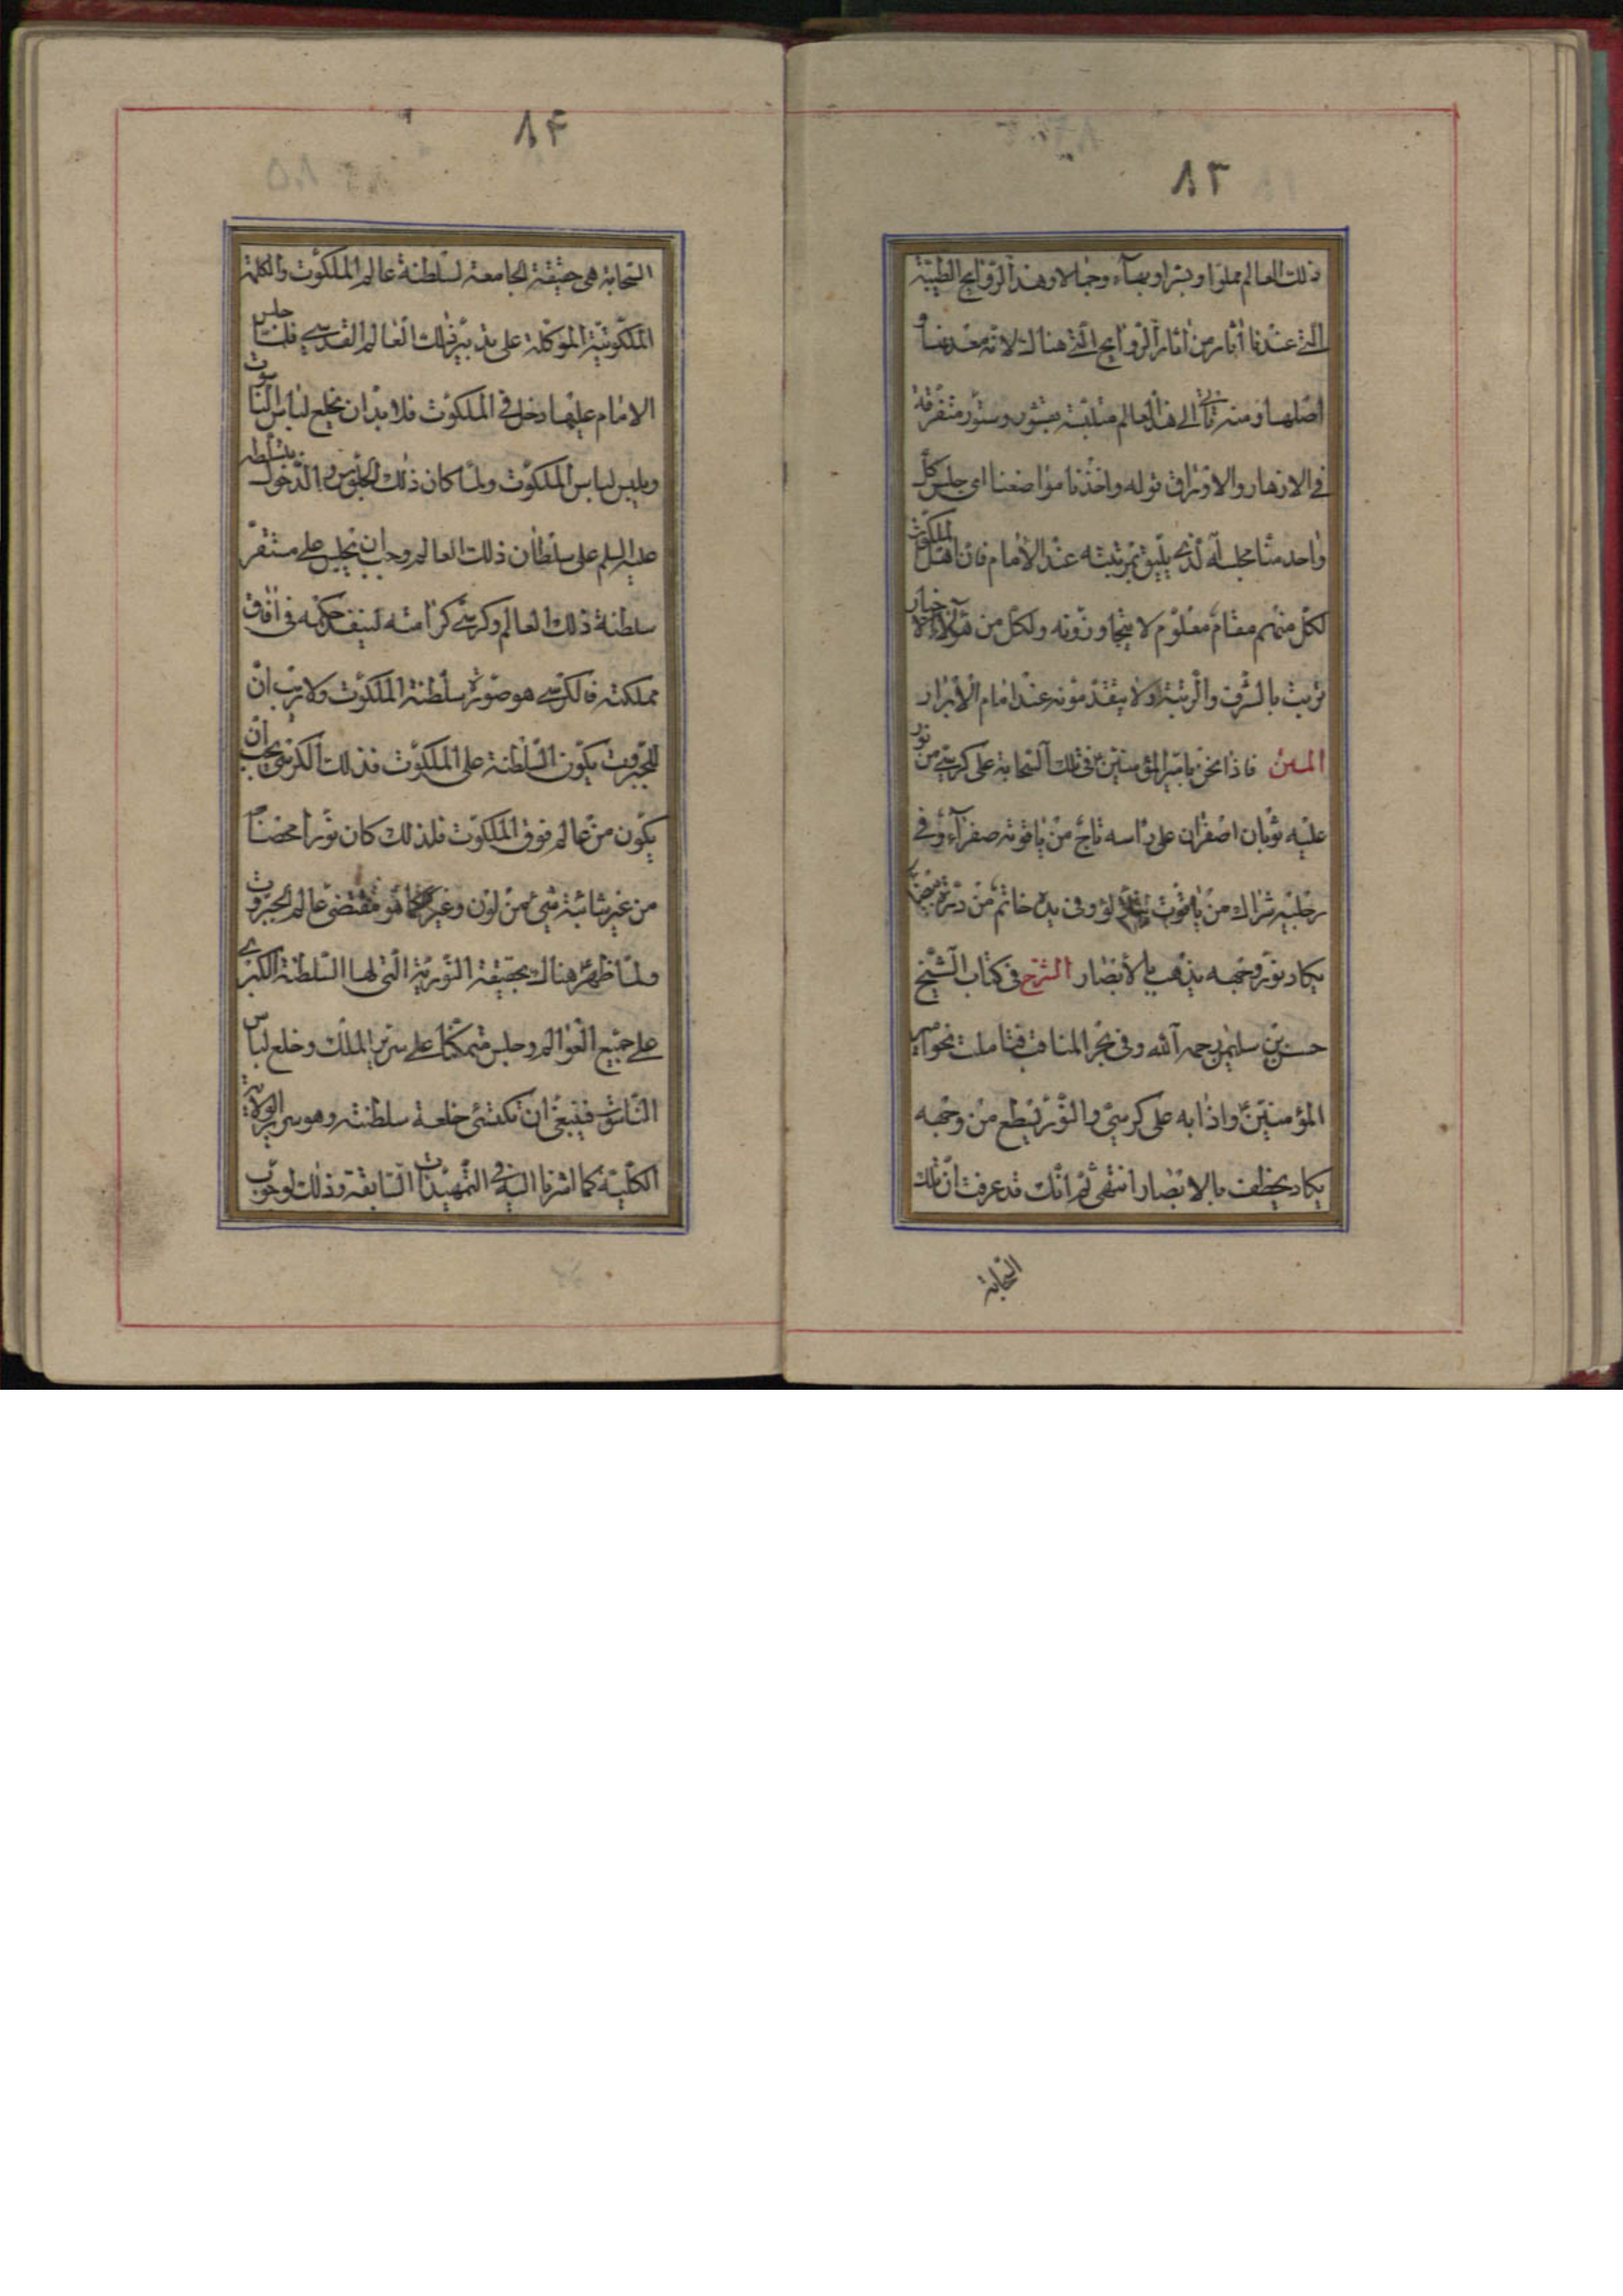 ٨٣
ذلك العالم مملوا وبشرا وبهآء وجمالا وهذا الروايح الطيبة
التي عندنا أثار من أثار الروايح التي هناك لانه معدنها و
أصلها ومنه تأتي الى هذا العالم متلبسة بقشور وستور متفرقة
في الازهار والاوراق قوله واخذنا مواضعنا اي جلس كل
واحد منا مجلسه الذي يليق بمرتبته عند الامام فان اهل الملكوت
لكل منهم مقام معلوم لا يتجاوزونه ولكل من هؤلاء الاخيار
ترتيب بالشرف والرتبة ولا يتقدمونه عند امام الابرار
المتن فاذا نحن بامير المؤمنين في تلك السحابة على كرسي من نور
عليه ثوبان اصفران على رأسه تاج من ياقوتة صفرآء وفي
رجليه شراك من ياقوت يتلألؤ وفي يده خاتم من درة بيضاء
يكاد نور وجهه يذهب بالأبصار الشرح في كتاب الشيخ
حسن بن سليمن رحمه الله وفي بحر المناقب فتأملت نحو امير
المؤمنين واذا به على كرسي والنور يسطع من وجهه
يكاد يخطف بالابصار انتهى ثم انك قد عرفت ان تلك
السحابة
٨٤
السحابة هي حقيقة الجامعة لسلطنة عالم الملكوت والكلمة
الملكوتية الموكلة على تدبير ذلك العالم القدسي فلما جلس
الامام عليها ودخل في الملكوت فلا بد ان يخلع لباس الناسوت
ويلبس لباس الملكوت ولما كان ذلك الجلوس والدخول بتسلطه
عليه السلم على سلطان ذلك العالم وجب ان يجلس على مستقر
سلطنة ذلك العالم وكرسي كرامته لينفذ حكمه في افاق
مملكته فالكرسي هو صورة سلطنة الملكوت ولا ريب ان
للجبروت يكون السلطنة على الملكوت فذلك الكرسي يجب ان
يكون من عالم فوق الملكوت فلذلك كان نورا محضا
من غير شائبة شيء من لون وغيره كما هو مقتضى عالم الجبروت
ولما ظهر هناك بحقيقة النورية التي لها السلطنة الكبرى
على جميع العوالم وجلس متمكنا على سرير الملك وخلع لباس
الناسوت فينبغي ان يكتسي خلعة سلطنته وهو سربال الولاية
الكلية كما اشرنا اليه في التمهيدات السابقة وذلك لوجوب